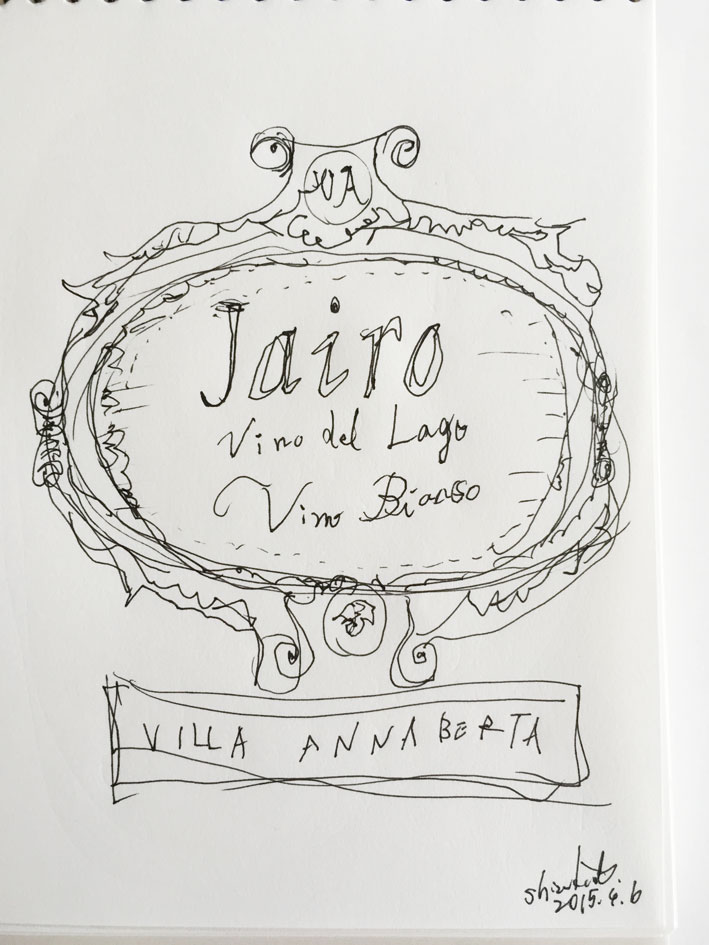 VA
Jairo
Vino del Lago
Vino Bianco
VILLA ANNABERTA
2015.4.6